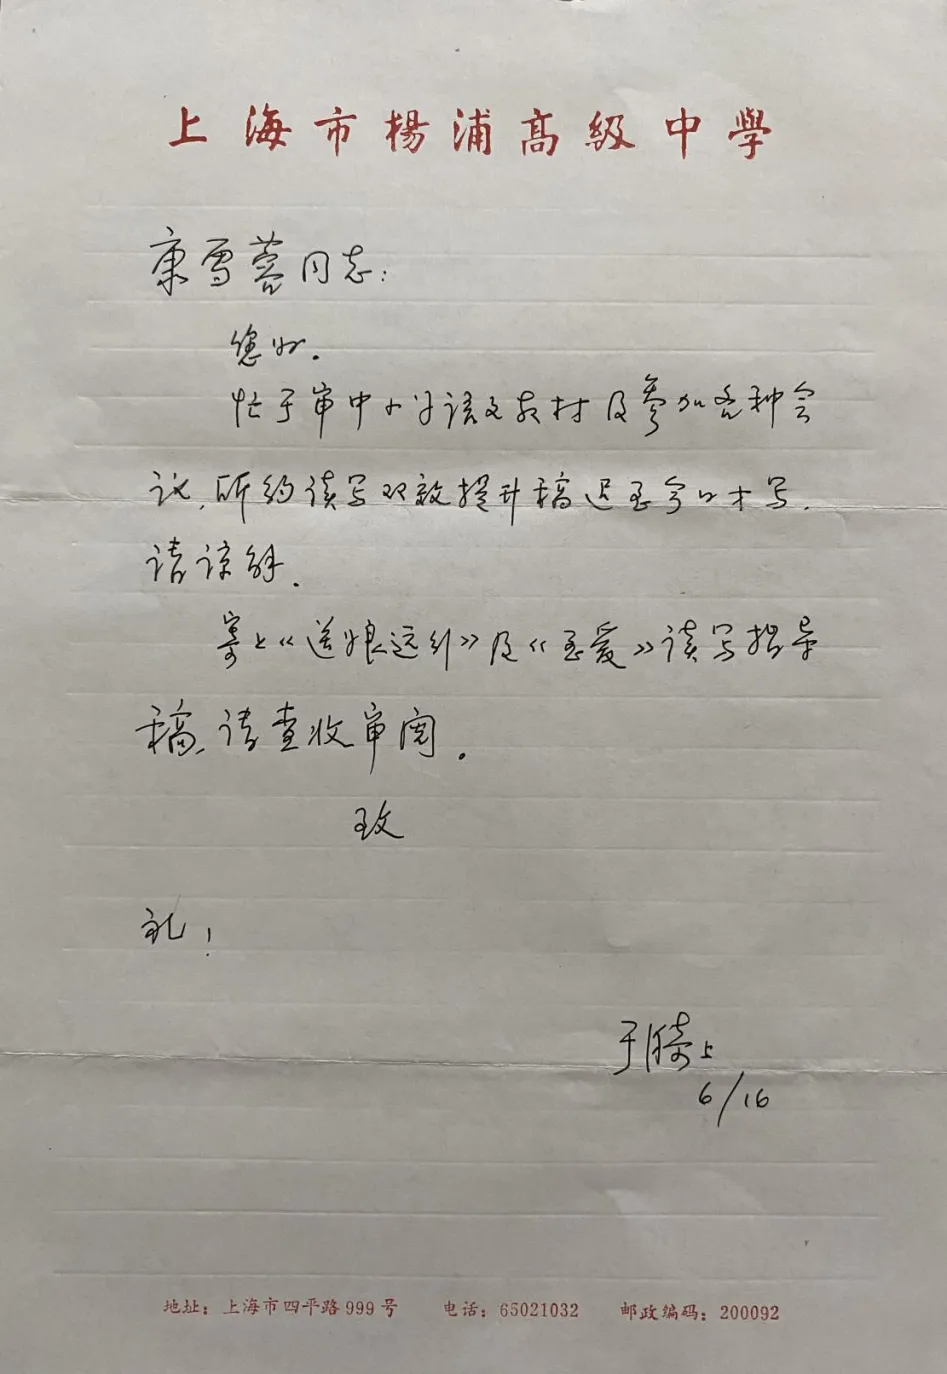 上海市楊浦高級中學
康雪蓉同志：
您好。
忙于审中小学语文教材及参加各种会
议，所约读写双效提升稿迟至今日才写，
请谅解。
寄上《送娘远行》及《至爱》读写指导
稿，请查收审阅。
致
礼！
于漪上
6/16
地址：上海市四平路999号 电话：65021032 邮政编码：200092